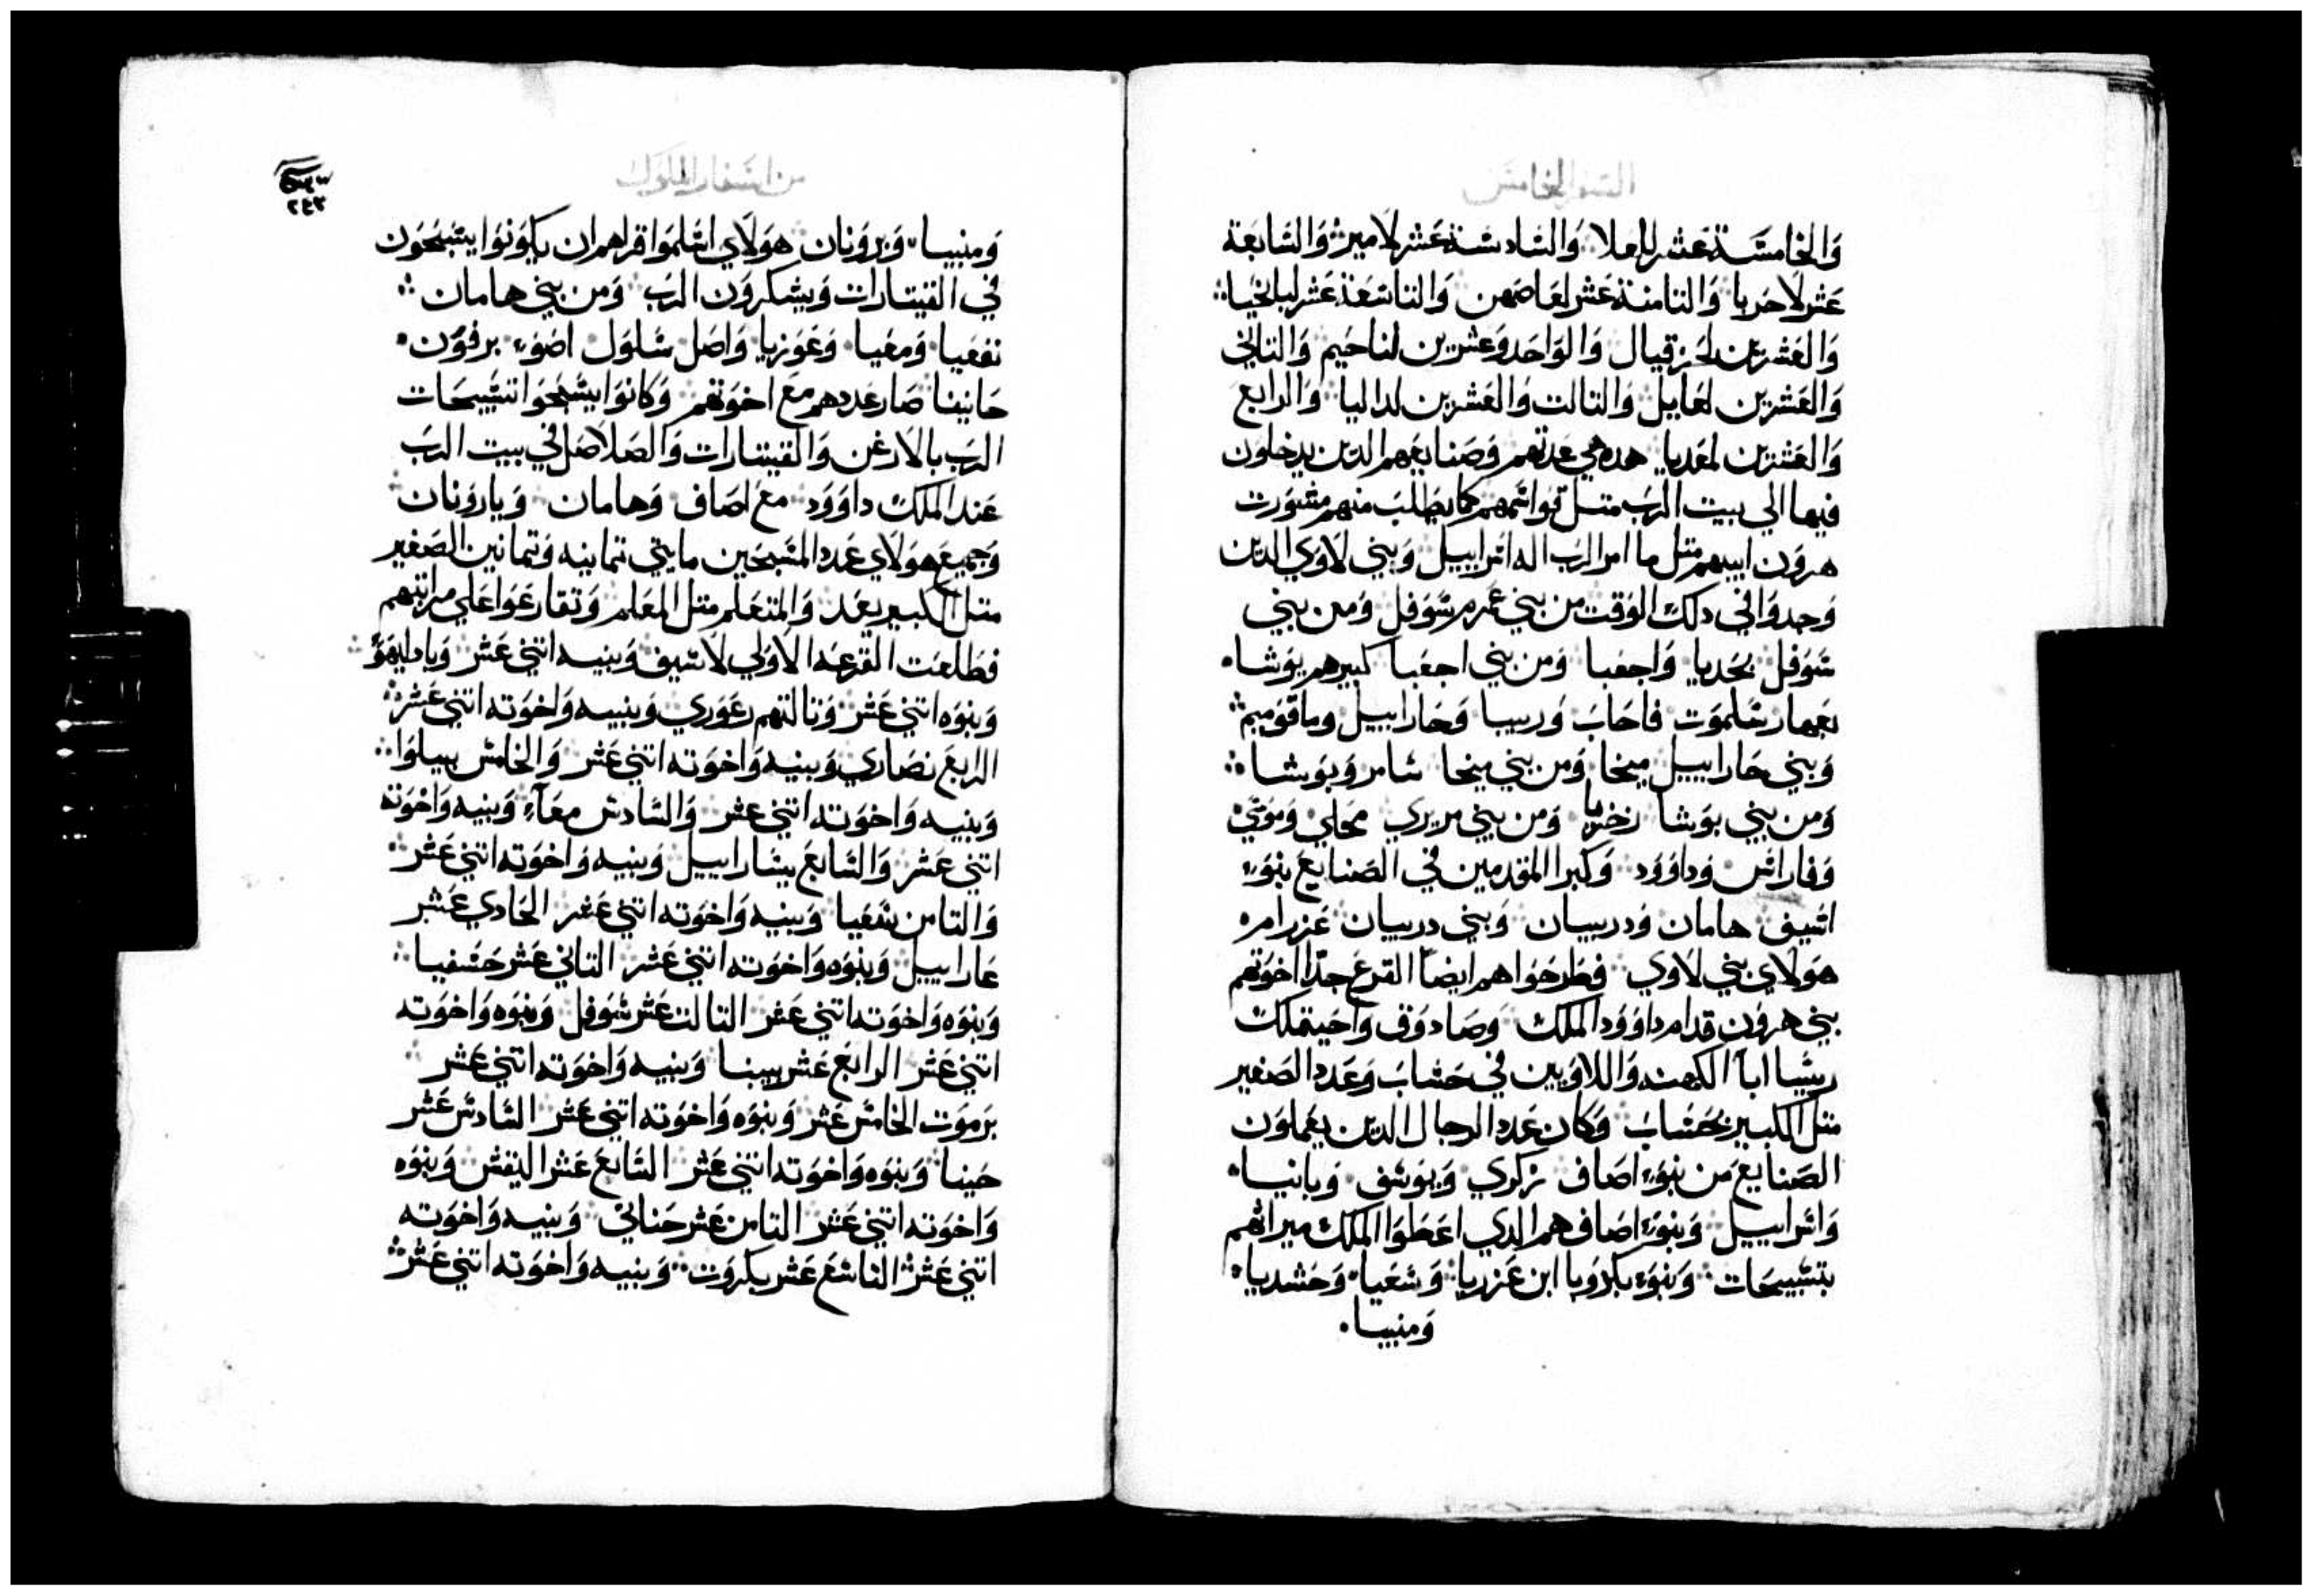 السفر الخامس
وَالخامسَة عَشر للعلا وَالسَادسَة عَشر لامير وَالسَابعَة
عَشر لاحَريا وَالتامنة عَشر لعَاصَمن وَالتاسَعَة عَشر لبالخيا
وَالعَشرين لحَزقيال وَالوَاحَد وَعشرين لناحَيم وَالتاني
وَالعَشرين لعَايل وَالتالت وَالعَشرين لداليا وَالرابع
وَالعَشرين لمعَديا هده هي عَدتهم وَصَنايعَهم الدين يدخلون
فيها الي بيت الرَب متل قوَاتمهم كما يطلبَ منهم مشوَرت
هروَن ابيهم متل ما امر الرَب اله اسراييل وَبني لاوَي الدين
وَجدوَا في دلك الوَقت من بني عَمرم سَوَفل وَمن بني
سَوَفل بحَديا وَاجعَبا وَمن بني اجعَبا كبيرهم يوَشا
بعَهار سَلموَت فاحَابَ وَربيبا وَحَاراييل وماقوَميم
وَبني حَاراييل ميخا وَمن بني ميخا سَامر وَبوَشا
وَمن بني بوَشا زخريا وَمن بني مريري محَلي وَموَتي
وَفاراسَ وَداوَوَد وَكبرا المقدمين في الصَنايع بنوَء
اسَيف هامان وَدربيبان وَبني دربيبان عَزرامر
هوَلاي بني لاوَي فطَرحَوَا هم ايضاً القرعَ جدّا اخوَتهم
بني هروَن قدام داوَوَد الملك وَصَادوَق وَاحَيتملك
ريسَا اباً الكهنه وَاللاوَيين في حَسَابَ وَعَدد الصَغير
متل الكبير بحَسَابَ وَكان عَدد الرجال الدين يعَملوَن
الصَنايع مَن بنوَء اصَاف زكوري وَيوَسَف وَبانيا
وَاسَراييل وَبنوَء اصَاف هم الدي اعَطَوَا الملك ميراتهم
بتسَبيحَات وَبنوَء بكروَيا ابن عَزريا وَشعَيا وَحَشديا
وَمنبيا
من اسفار الملوك
٢٤٣
وَمنبيا وَبروَنان هوَلاي اسَلموَا قراهم ان يكوَنوَا يسَبحَوَن
في القيتارات وَيشكروَن الرَب وَمن بني هامان
نفعَيا وَمعَيا وَعَوَزيا وَاصَل سَاوَل اضوَء برفوَن
حَانينا صَار عَددهم مع اخوَتهم وَكانوَا يسَبحَوا تسَبيحَات
الرَب بالارغن وَالقيتارات وَالصَلاصَل في بيت الرَب
عَند الملك داوَوَد مع اصَاف وَهامان وَياروَنان
وَجميع هوَلاي عَدد المسَبحَين مايتي تمانيه وَتمانين الصَغير
متل الكبير بعَد وَالمتعَلم متل المعَلم وَتقارعَوَا عَلي مراتبهم
فطَلعَت القرعَه الاوَلي لاسَيف وَبنيه اتني عَشر وَباداليهوَ
وَبنوَه اتني عَشر وَتالتهم رعَوَري وَبنييه وَاخوَته اتني عَشر
الرابع نصَاري وَبنيه وَاخوَته اتني عَشر وَالخامسَ بيبلوَا
وَبنيه وَاخوَته اتني عشر وَالسَادسَ معَاء وَبنيه وَاخوَته
اتني عَشر وَالسَابع بيسَاراييل وَبنيه وَاخوَته اتني عَشر
وَالتامن شعَيا وَبنيه وَاخوَته اتني عَشر الحَادي عَشر
عَاراييل وَبنوَه وَاخوَته اتني عَشر التاني عَشر حَسَفيا
وَبنوَه وَاخوَته اتني عَشر التالت عَشر سَوَفل وَبنوَه وَاخوَته
اتني عَشر الرابع عَشر بيبنا وَبنيه وَاخوَته اتني عَشر
برموَت الخامسَ عَشر وَبنوَه وَاخوَته اتني عَشر السَادسَ عَشر
حَينا وَبنوَه وَاخوَته اتني عَشر السَابع عَشر اليفسَ وَبنوَه
وَاخوَته اتني عَشر التامن عَشر حَناني وَبنيه وَاخوَته
اتني عَشر التاسَع عَشر بكروَت وَبنييه وَاخوَته اتني عَشر